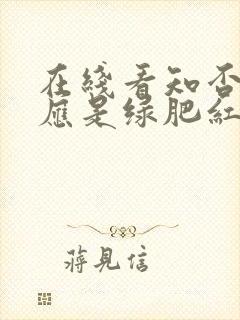 在綫看知否
應是绿肥紅
蔣見信